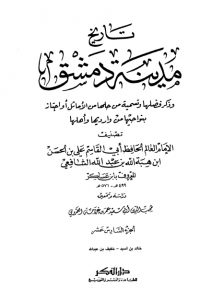 تاريخ
مدينة دمشق
وذكر فضلها وتسمية من حلها من الأماثل أو اجتاز
بنواحيها من وارديها وأهلها
تصنيف
الإمام العالم الحافظ أبي القاسم علي بن الحسن
ابن هبة الله بن عبد الله الشافعي
المعروف بابن عساكر
٤٩٩ هـ - ٥٧١ هـ
دراسة وتحقيق
محب الدين أبي سعيد عمر بن غرامة العمروي
الجزء السادس عشر
خالد بن أسيد - خفيف بن عبد الله
دار الفكر
للطباعة والنشر والتوزيع